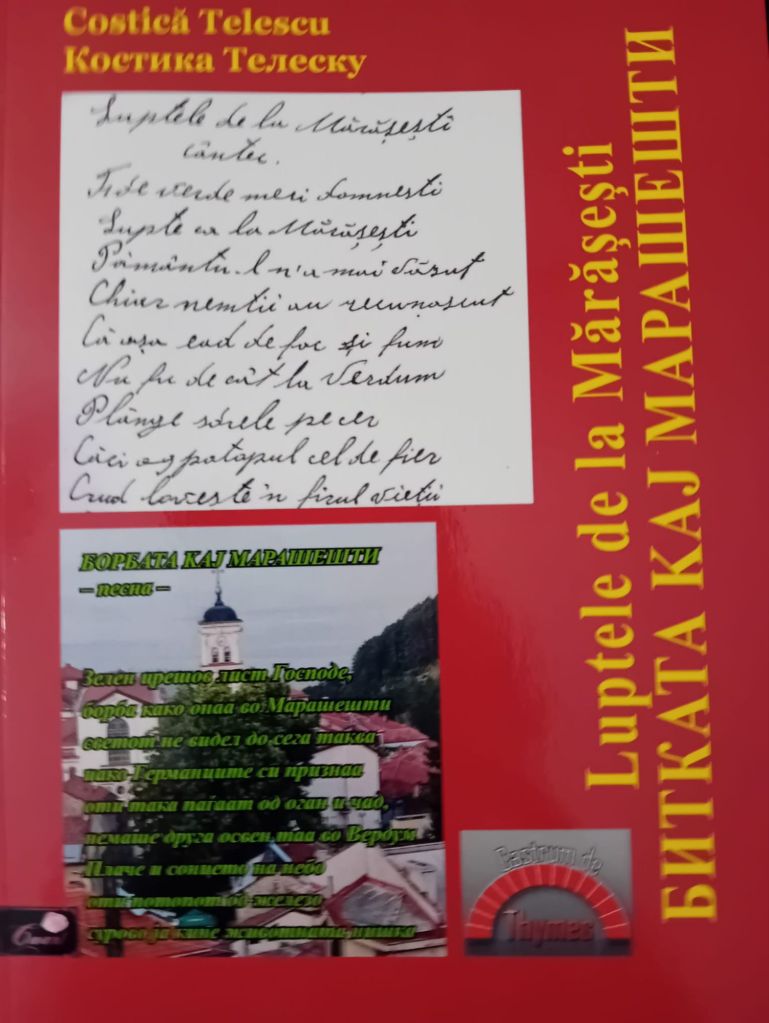 Costică Telescu
Костика Телеску
Luptele de la Mărășești
cântec.
verde meri domnesti
Lupte ca la Mărășești
Pământu-l n'a mai văzut
Chiar nemtii au recunoscut
Că așa iad de foc și fum
Nu fu de cât la Verdum
Plânge sórele pe cer
Căci potopul cel de fier
Crud lovește 'n firul vieții
БОРБАТА КАЈ МАРАШЕШТИ
– песна –
Зелен црешов лист Господе,
борба како онаа во Марашешти
светот не видел до сега таква
иако Германците си признаа
оти така паѓаат од оган и чад,
немаше друга освен таа во Вердум
Плаче и сонцето на небо
оти потопот од железо
сурово ја кине животната нишка
Luptele de la Mărășești
БИТКАТА КАЈ МАРАШЕШТИ
Castrum de
Thymes